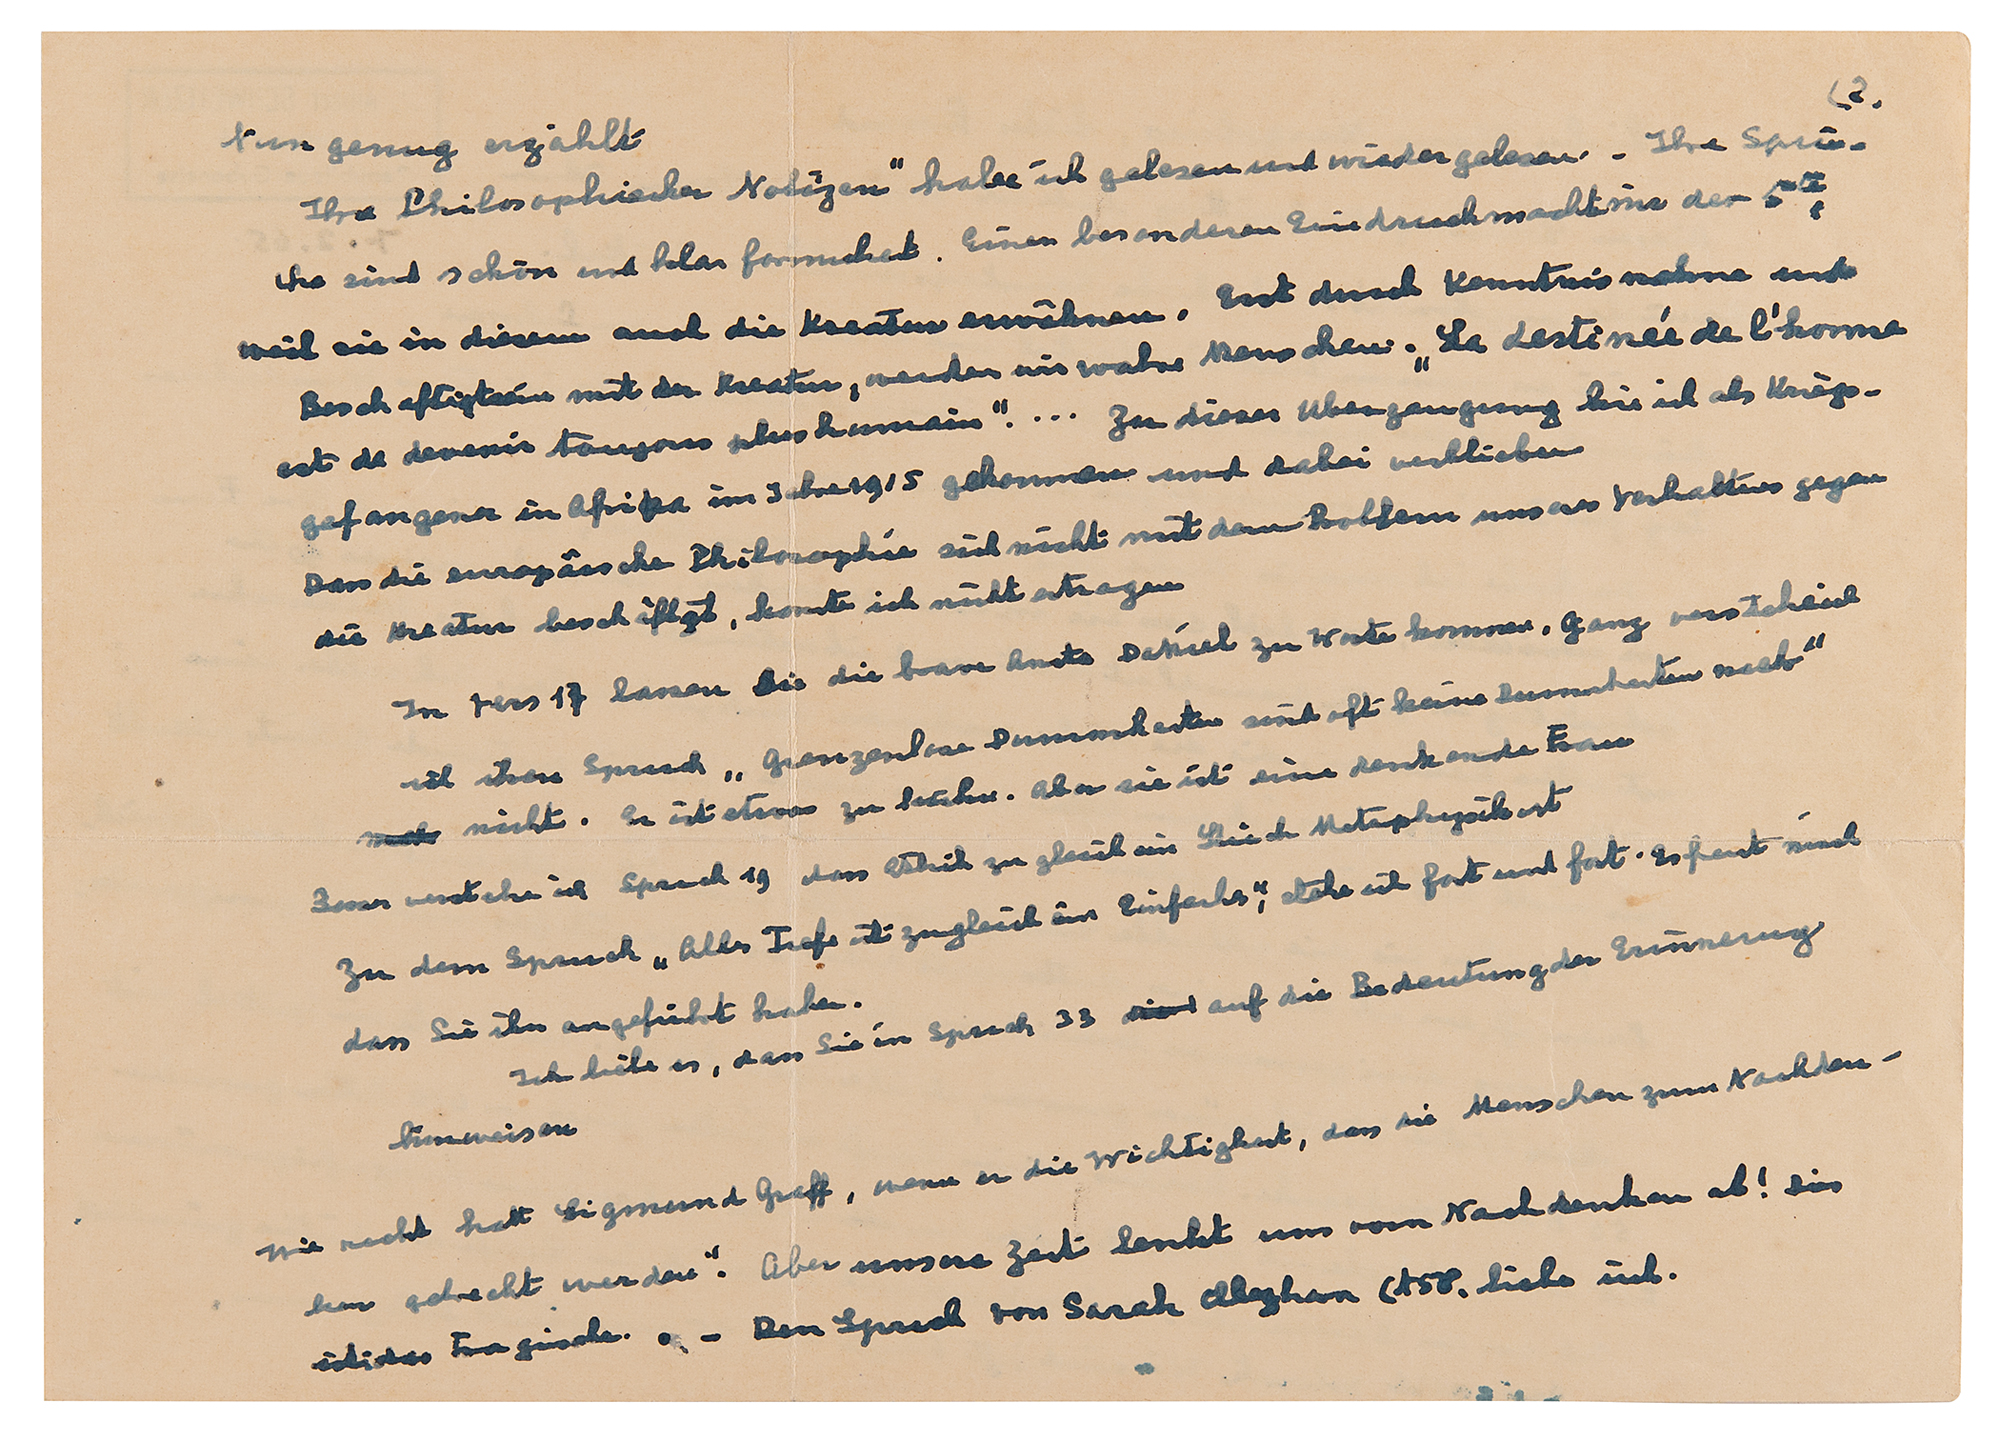 (2.
Nun genug erzählt
Ihre Philosophischen Notizen" habe ich gelesen und wieder gelesen. - Ihre Sprü-
che sind schön und klar formuliert. Einen besonderen Eindruck macht mir der 5te,
weil sie in diesem auch die Kreatur erwähnen. Erst durch Kenntnis nahme und
Beschäftigtsein mit der Kreatur, werden wir wahre Menschen. „La destinée de l'homme
est de devenir toujours plus humain". ... Zu dieser Uberzeugung bin ich als Kriegs-
gefangener in Afrika im Jahre 1915 gekommen und dabei verblieben
Dass die europäische Philosophie sich nicht mit dem Problem unseres Verhaltens gegen
die Kreatur beschäftigt, konnte ich nicht ertragen
In Vers 17 lassen Sie die brave zu Worte kommen. Ganz verstehe
ich ihren Spruch „Grenzenlose Dummheiten sind oft keine Dummheiten mehr"
nicht. Er ist etwas zu kühn. Aber sie ist eine denkende Frau
Besser verstehe ich Spruch 19 dass Ethik zu gleich ein Stück Metaphysik ist
Zu dem Spruch „Alles Tiefe ist zugleich ein Einfaches", stehe ich fort und fort. Es freut mich
dass Sie ihn angeführt haben.
Ich liebe es, dass Sie in Spruch 33 auf die Bedeutung der Erinnerung
hinweisen
Wie recht hatt Sigmund Graff, wenn er die Wichtigkeit, dass die Menschen zum Nachden-
ken gebracht werden". Aber unsere Zeit lenkt uns vom Nachdenken ab! Dies
ist das Tragische. . - Den Spruch von Sarah (158. liebe ich.